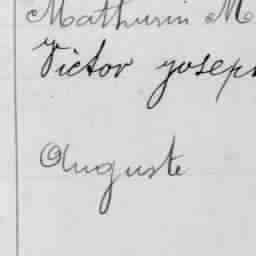 Mathurin M
Victor joseph
Auguste